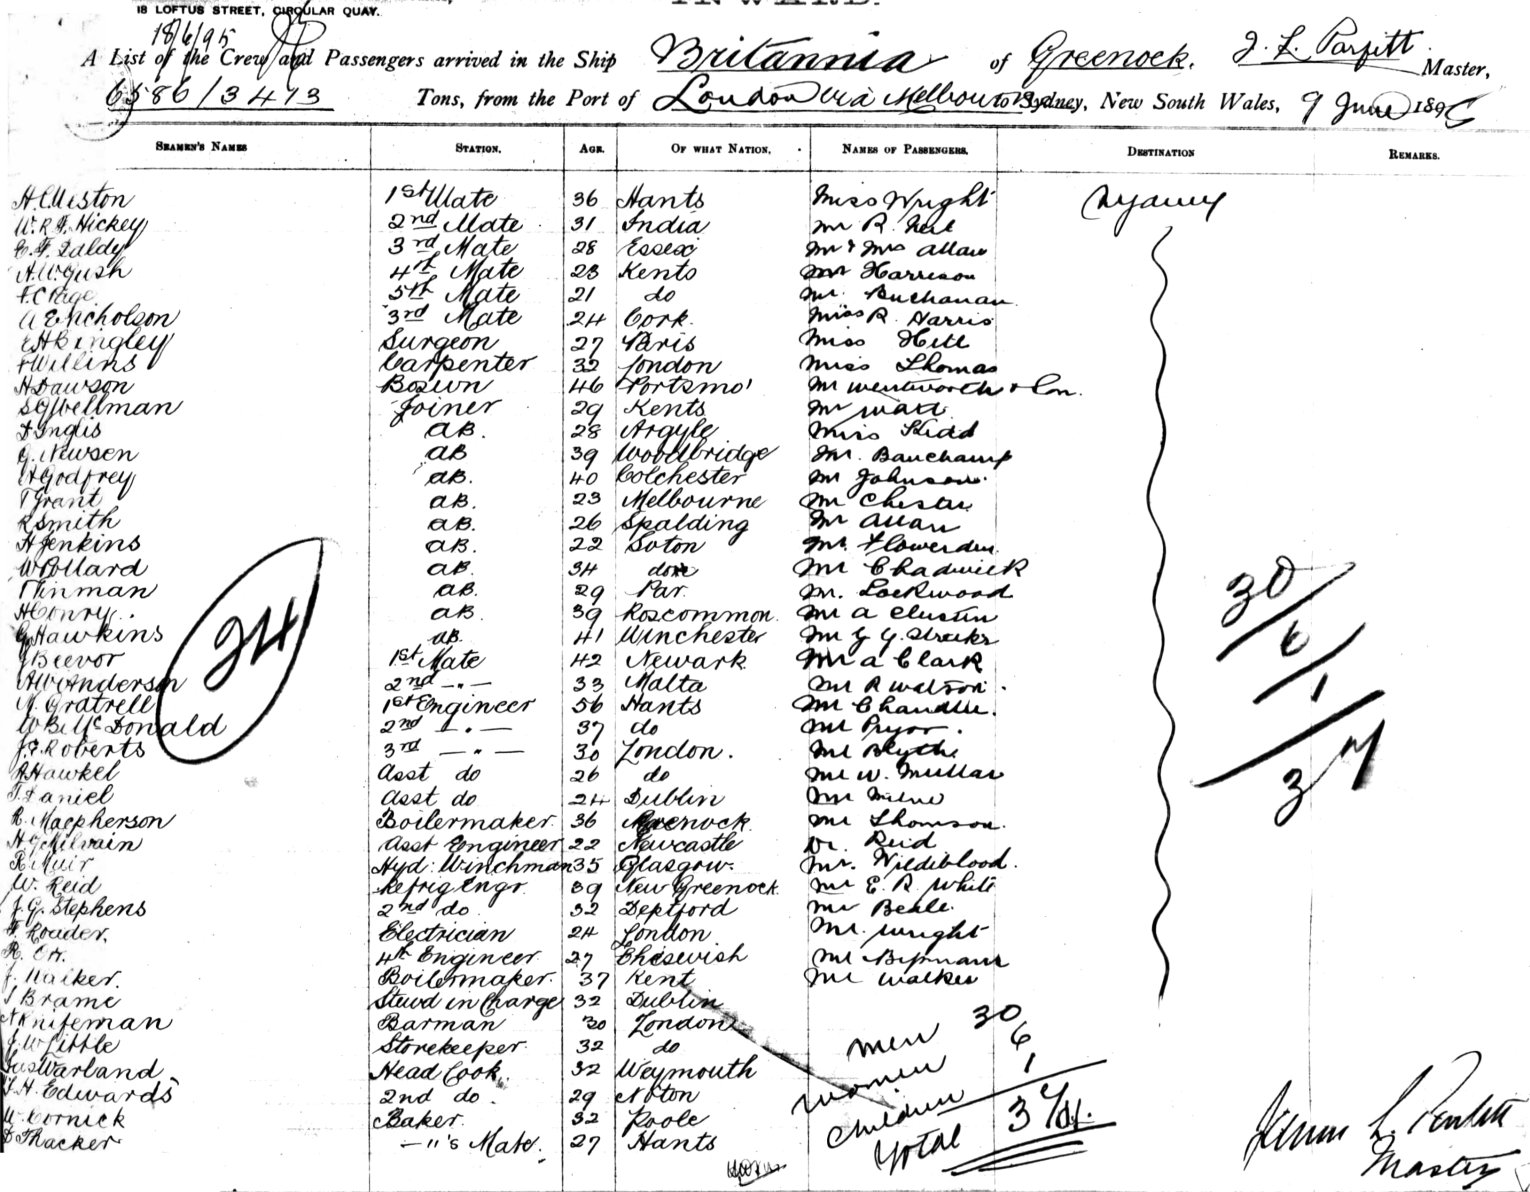 INWARD.
18 LOFTUS STREET, CIRCULAR QUAY.
18/6/95
A List of the Crew and Passengers arrived in the Ship Britannia of Greenock. J. L. Parfitt Master,
6586/3413 Tons, from the Port of London via Melbourne to Sydney, New South Wales, 9 June 1895
SEAMEN'S NAMES STATION. AGE. OF WHAT NATION. NAMES OF PASSENGERS. DESTINATION REMARKS.
H. C. Weston 1st Mate 36 Hants Miss Wright Sydney
W. R. F. Hickey 2nd Mate 31 India Mr R. Neil
C. F. Daldy 3rd Mate 28 Essex Mr & Mrs Allan
A. W. Gush 4th Mate 23 Kents Mr Harrison
F. C Page 5th Mate 21 do Mr. Buchanan
A E Nicholson 3rd Mate 24 Cork Miss R. Harris
E H Bingley Surgeon 27 Paris Miss Hill
F Willins Carpenter 32 London Miss Thomas
H Dawson Boswn 46 Portsmo' Mr Wentworth & Son.
S G Wellman Joiner 29 Kents Mr Watt
D Inglis AB. 28 Argyle Miss Kidd
G. Newsen AB 39 Woodbridge Mr. Bauchamp
H Godfrey AB. 40 Colchester Mr Johnson
T Grant AB. 23 Melbourne Mr Chester
R Smith AB. 26 Spalding Mr Allan
H Jenkins AB. 22 Soton Mr. Flowerden
W Pollard AB. 34 do Mr Chadwick
T Inman AB. 29 Par. Mr. Lockwood
H Conry. AB. 39 Roscommon Mr A Clustin
G Hawkins AB. 41 Winchester Mr G. Y. Streeter
J Beevor 1st Mate 42 Newark Mr A Clark
A W Anderson 2nd -"- 33 Malta Mr R Watson.
N. Gratrell 1st Engineer 56 Hants Mr Chandler.
W B. McDonald 2nd -"- 37 do Mr Pryor.
J. E. Roberts 3rd -"- 30 London. Mr Blythe
A Hawkel Asst do 26 do Mr W. Mullar
T. Daniel Asst do 24 Dublin Mr Milne
R. Macpherson Boilermaker 36 Greenock Mr Thomson.
H G McIlvain Asst Engineer 22 Newcastle Dr. Reid
R Muir Hyd: Winchman 35 Glasgow. Mr. Wildiblood.
W. Reid Refrig Engr. 39 New Greenock Mr E. R. White
J. G. Stephens 2nd do 32 Deptford Mr Beale.
F. Roader. Electrician 24 London Mr. Wright
R. Orr. 4th Engineer 27 Cheswish Mr
J. Walker. Boilermaker. 37 Kent Mr Walker
T Brame Stewd in Charge 32 Dublin
A Knifeman Barman 30 London
J. W Little Storekeeper 32 do
Gus Warland Head Cook. 32 Weymouth
T. H. Edwards 2nd do. 29 Noton
W. Cornick Baker. 32 Poole
D Thacker -"'s Mate. 27 Hants
24
30
6
1
37
men 30
women 6
children 1
Total 37
James L. Parfitt
Master